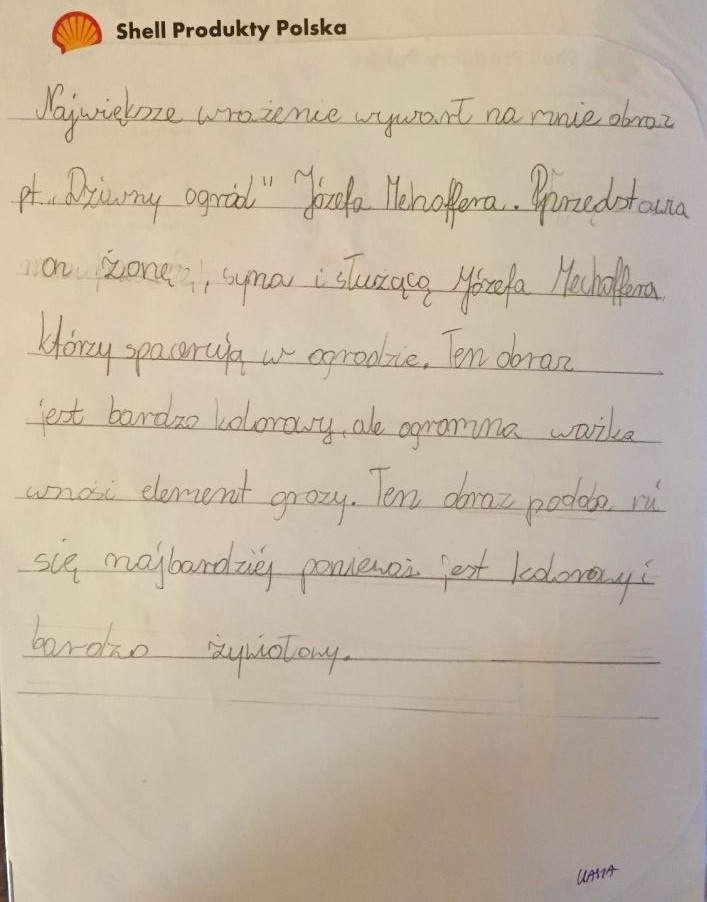 Shell Produkty Polska
Największe wrażenie wywarł na mnie obraz
pt. „Dziwny ogród" Józefa Mehoffera. Przedstawia
on żonę, syna i służącą Józefa Mechoffera,
którzy spacerują w ogrodzie. Ten obraz
jest bardzo kolorowy, ale ogromna ważka
wnosi element grozy. Ten obraz podoba mi
się najbardziej ponieważ jest kolorowy i
bardzo żywiołowy.